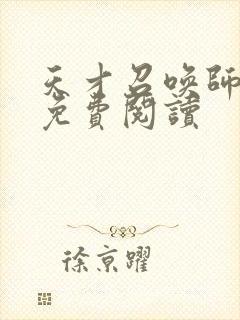 天才召喚師
免費閱讀
徐京躍